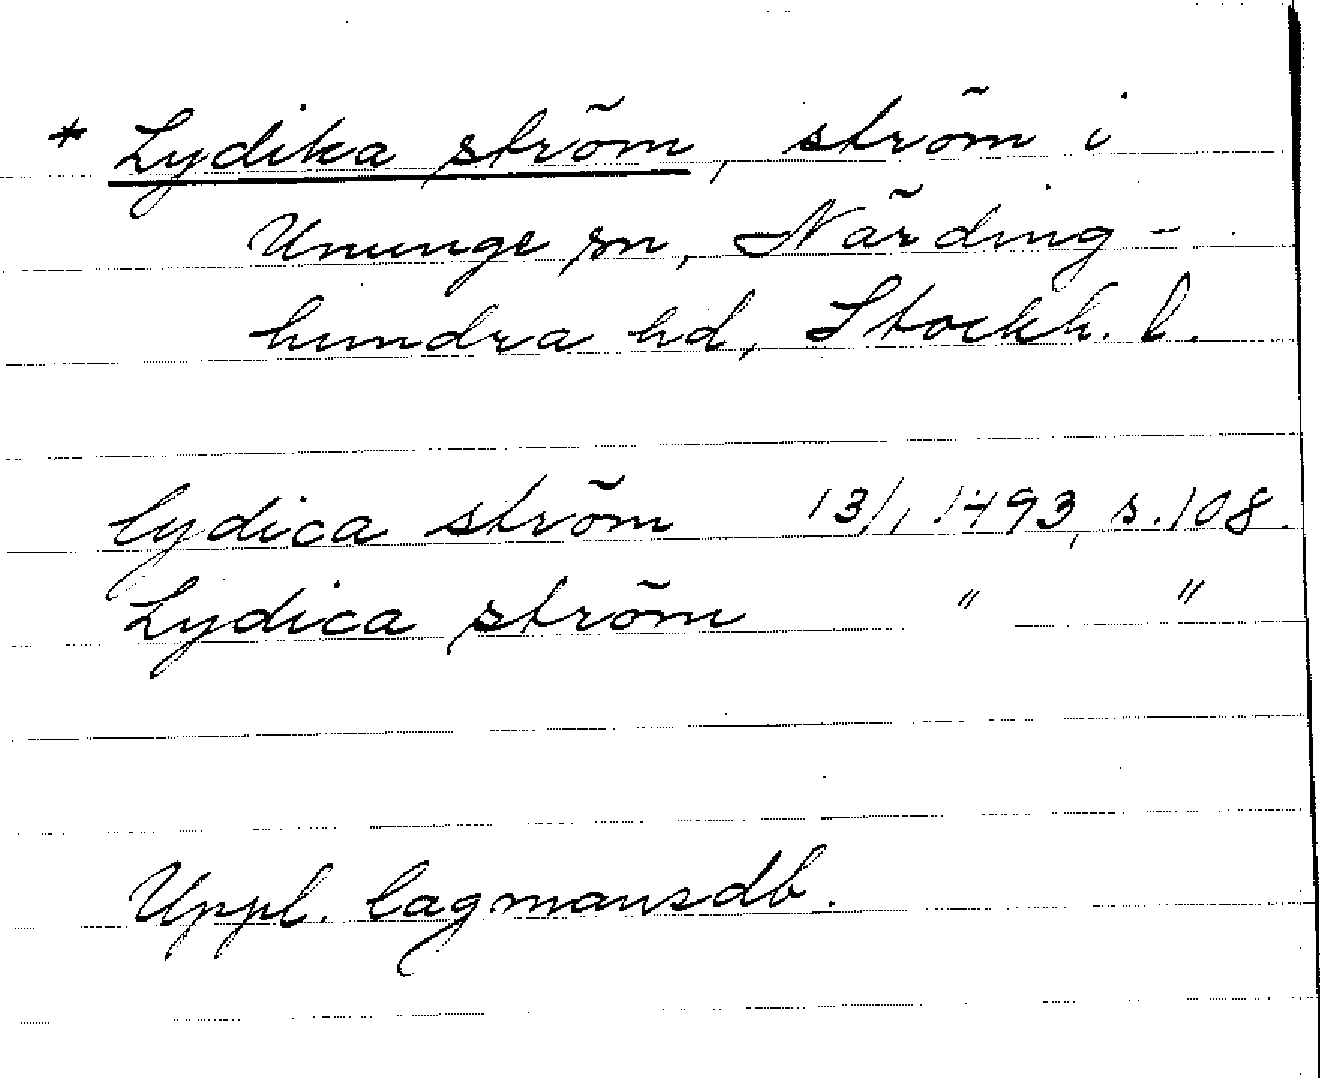 * Lydika ström, ström i
Ununge sn, Närding-
hundra hd, Stockh. l.
lydica ström 13/1 1493, s. 108.
Lydica ström " "
Uppl. lagmansdb.